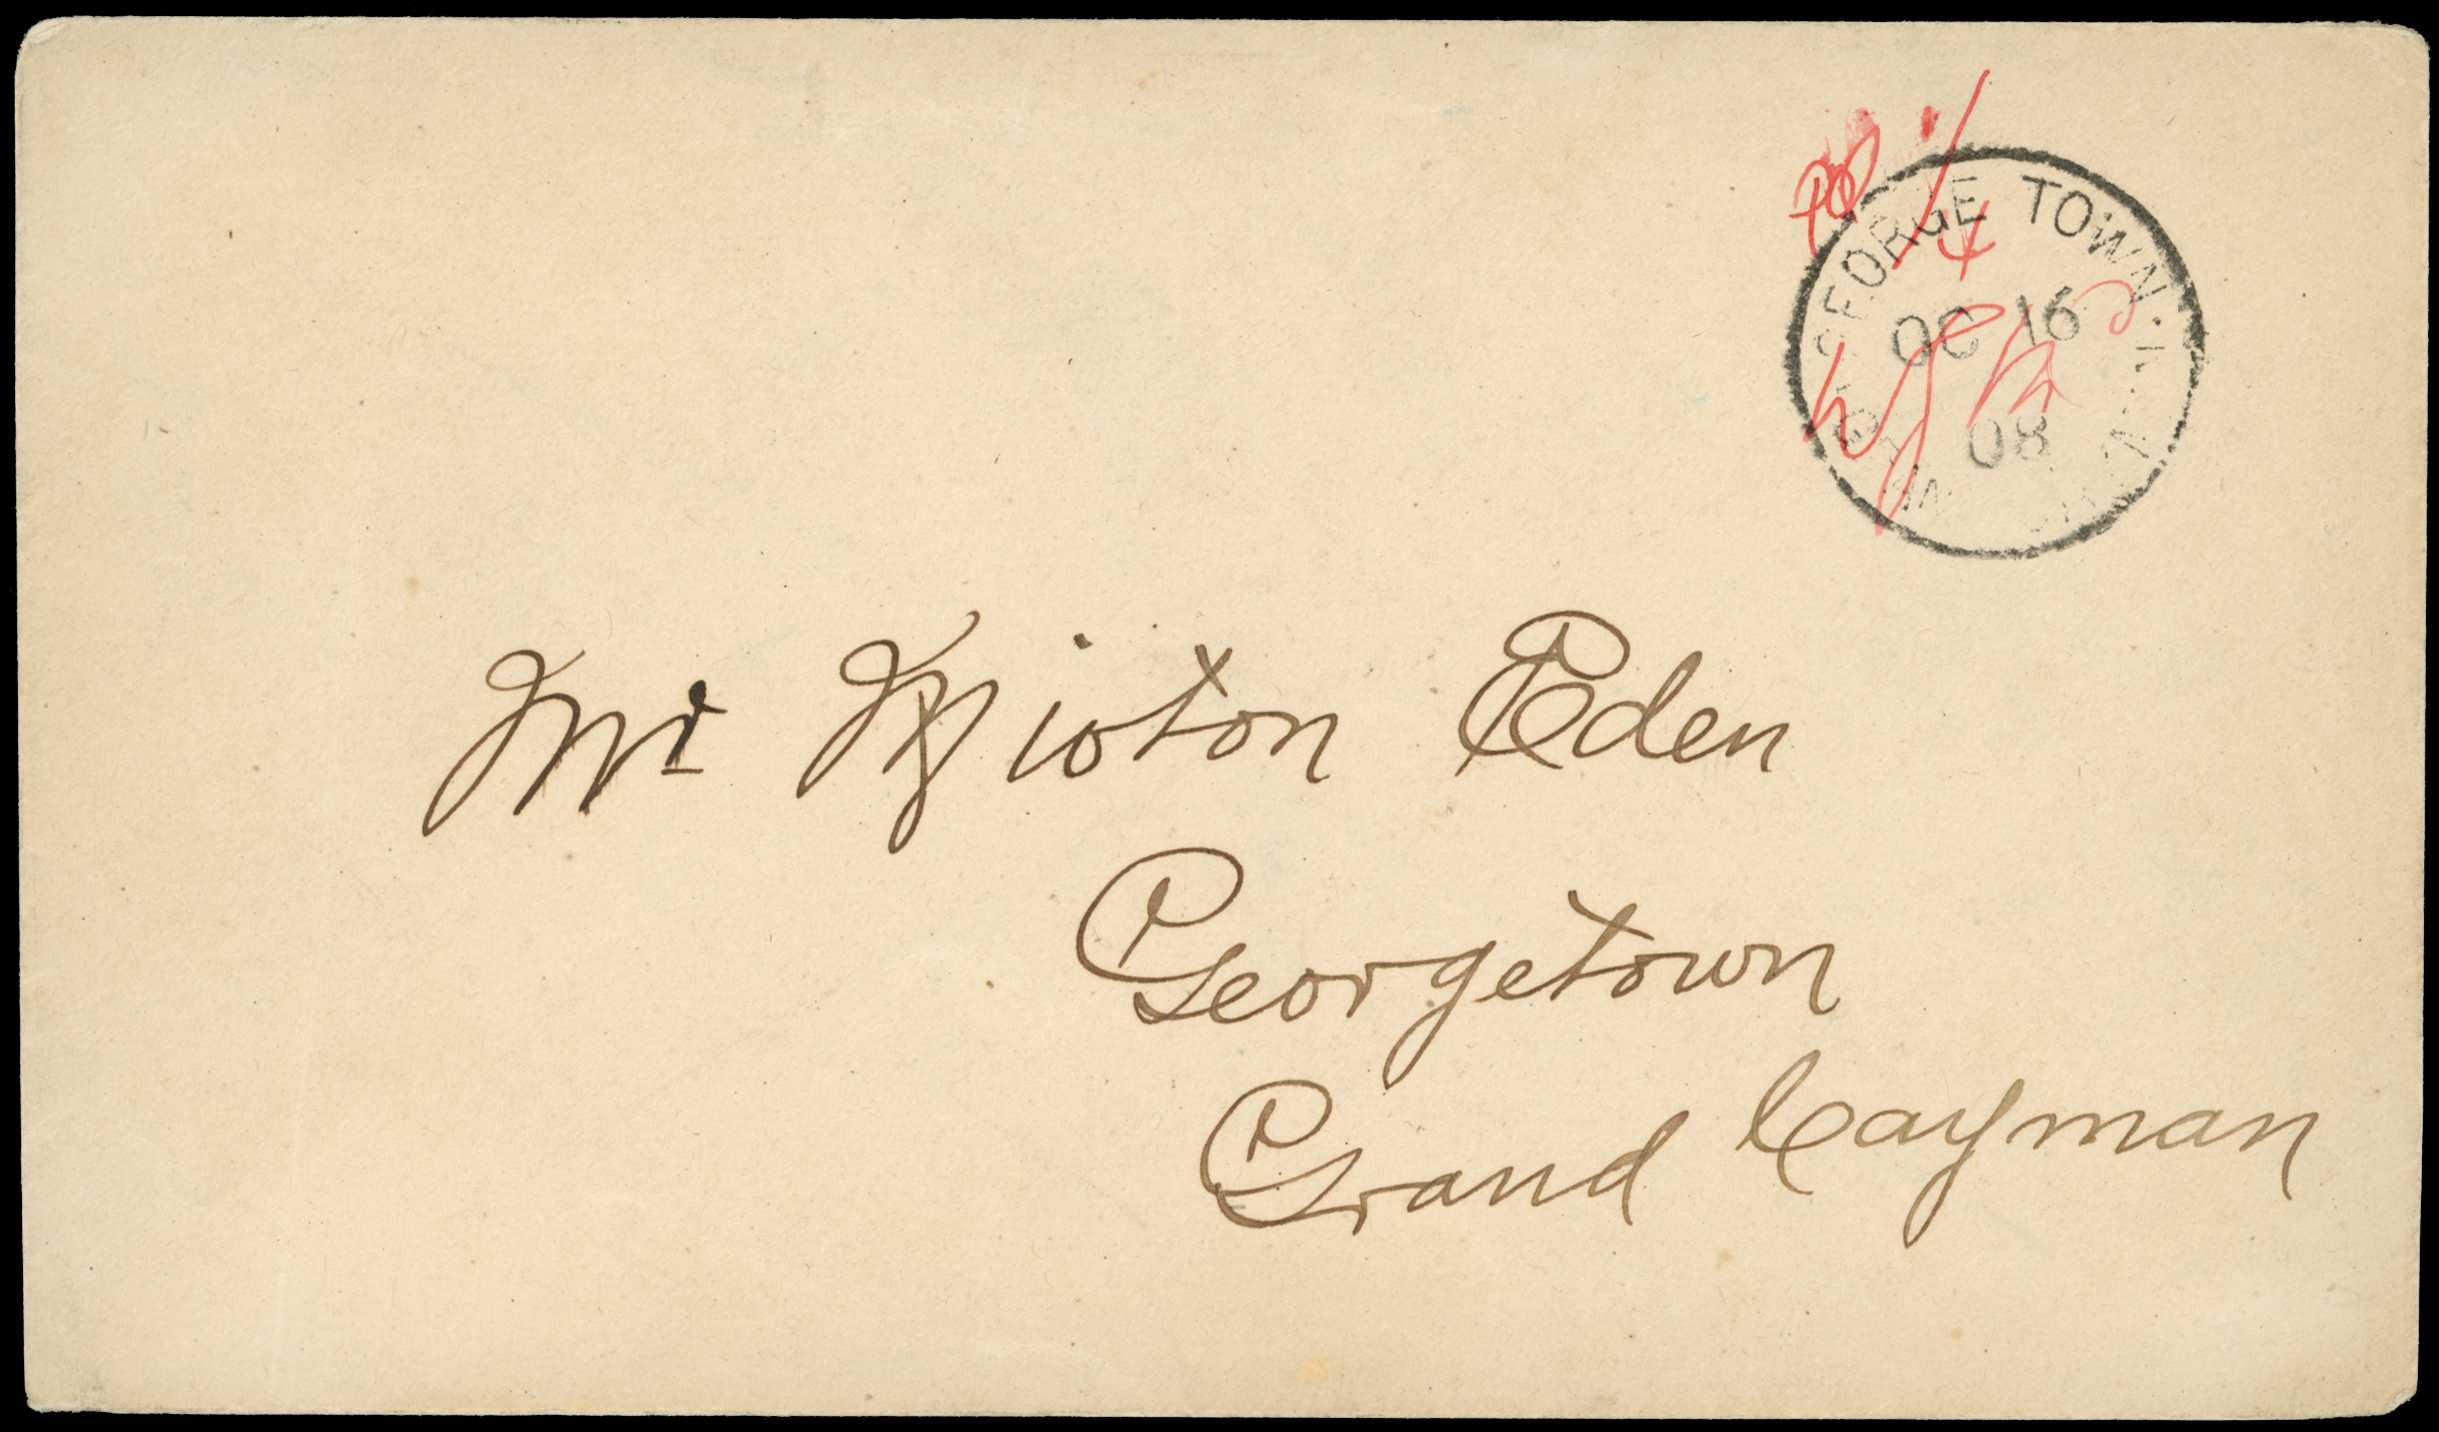 GEORGE TOWN.
OC 16
08
Mr Eden
Georgetown
Grand Cayman